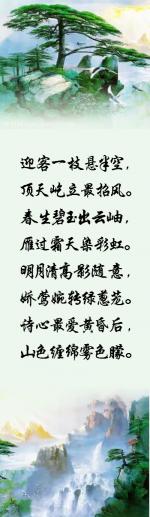 迎客一枝悬半空，
顶天屹立最招风。
春生碧玉出云岫，
雁过霜天染彩虹。
明月清高影随意，
娇莺婉转绿葱茏。
诗心最爱黄昏后，
山色缠绵雾色朦。